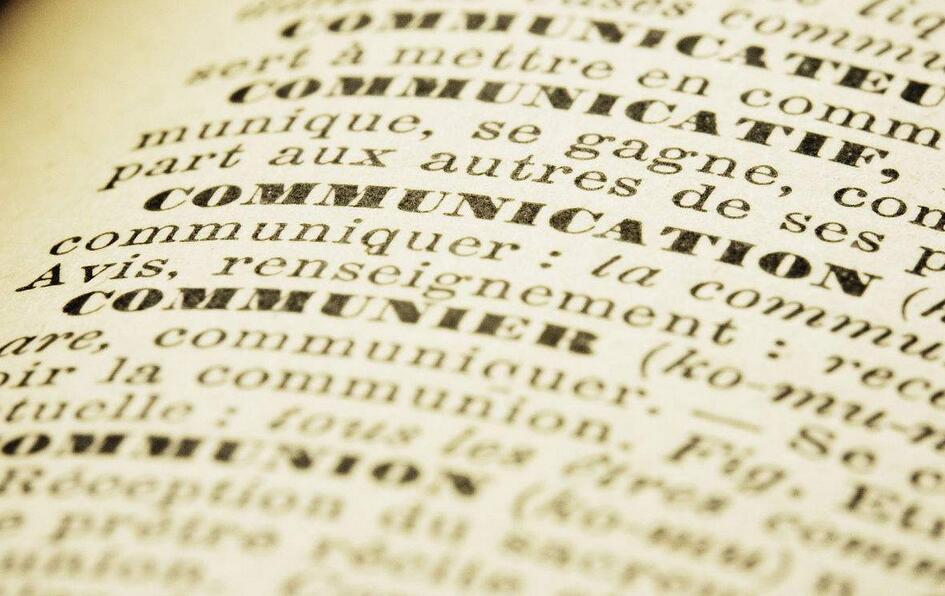 liq
COMMUNICATEU
sert à mettre en comm
COMMUNICATIF,
munique, se gagne, com
part aux autres de ses p
COMMUNICATION (k
communiquer : la commu
Avis, renseignement : rece
COMMUNIER (ko-mu-n
are, communiquer. — Se c
oir la communion. Fig. Etr
tuelle : tous les êtres comm
OMMUNION (ko-mu)
Réception du sacre
e prêtre récite
union.